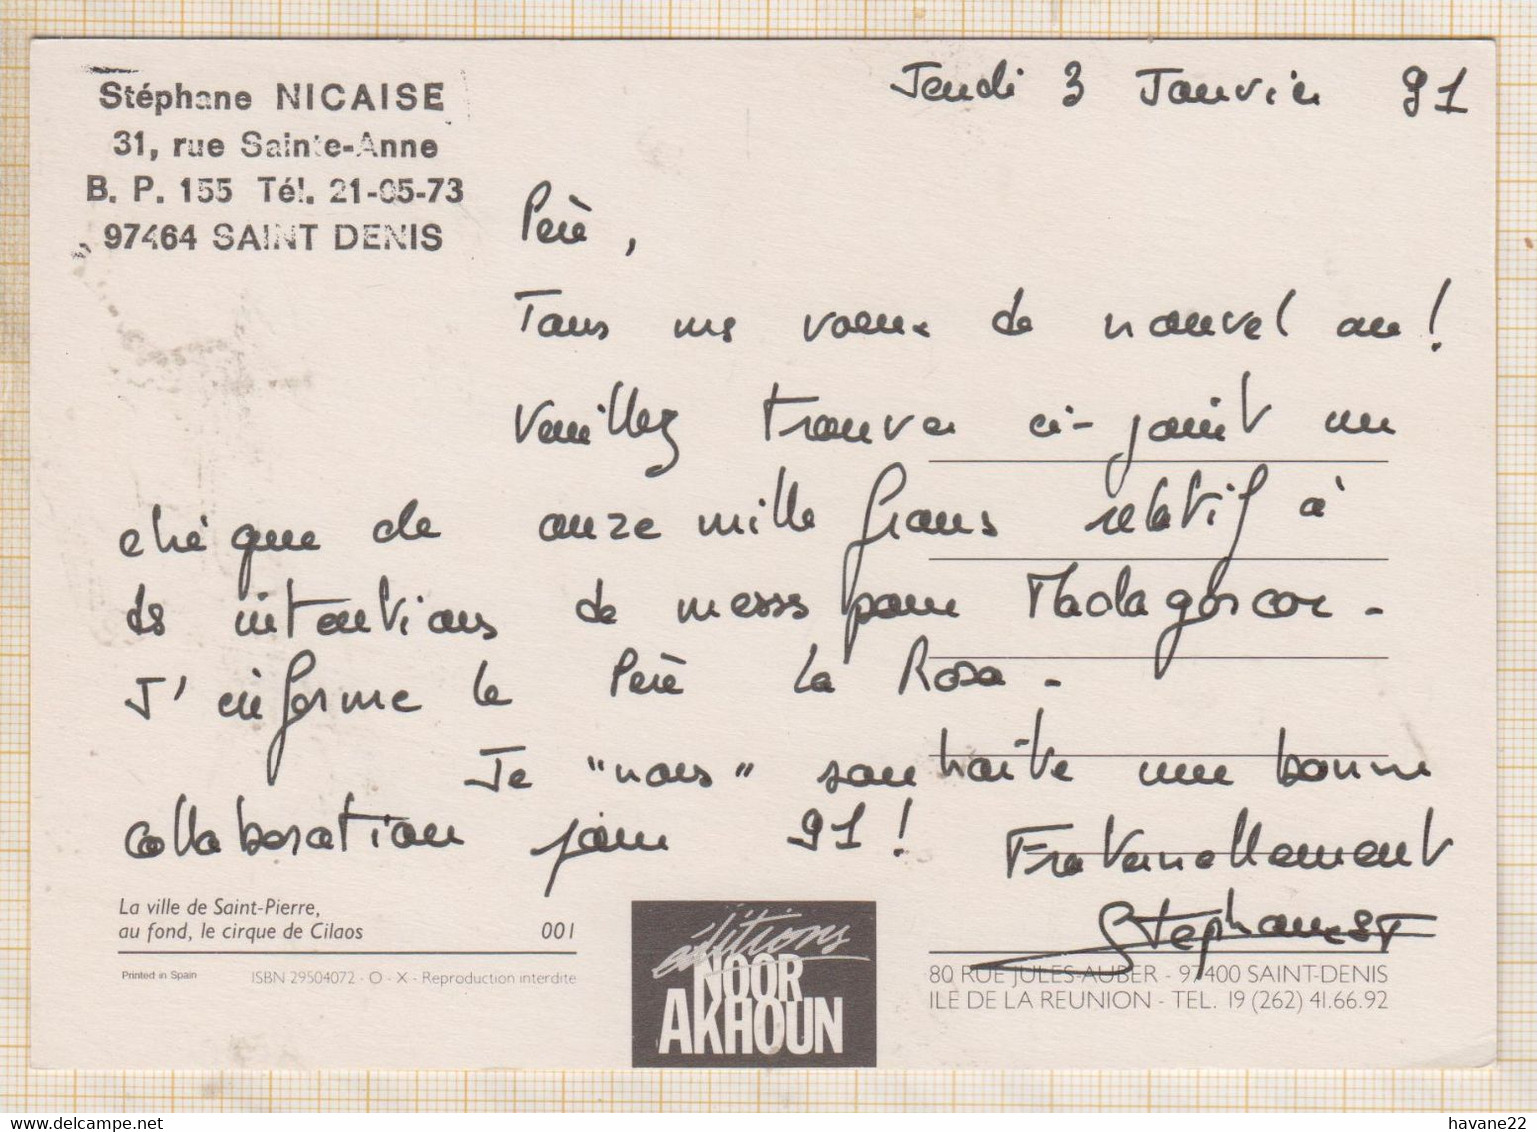 Stéphane NICAISE
31, rue Sainte-Anne
B. P. 155 Tél. 21-05-73
97464 SAINT DENIS
Jeudi 3 Janvier 91
Père,
Tous mes voeux de nouvel an !
Veuillez trouver ci-joint un
chèque de onze mille francs relatif à
des intentions de messes pour Madagascar.
J'informe le Père La Rosa.
Je "nous" souhaite une bonne
collaboration pour 91 !
Fraternellement
Stéphane SJ
La ville de Saint-Pierre,
au fond, le cirque de Cilaos 001
Printed in Spain ISBN 29504072 - O - X - Reproduction interdite
éditions
NOOR
AKHOUN
80 RUE JULES-AUBER - 97400 SAINT-DENIS
ILE DE LA REUNION - TEL. 19 (262) 41.66.92
havane22